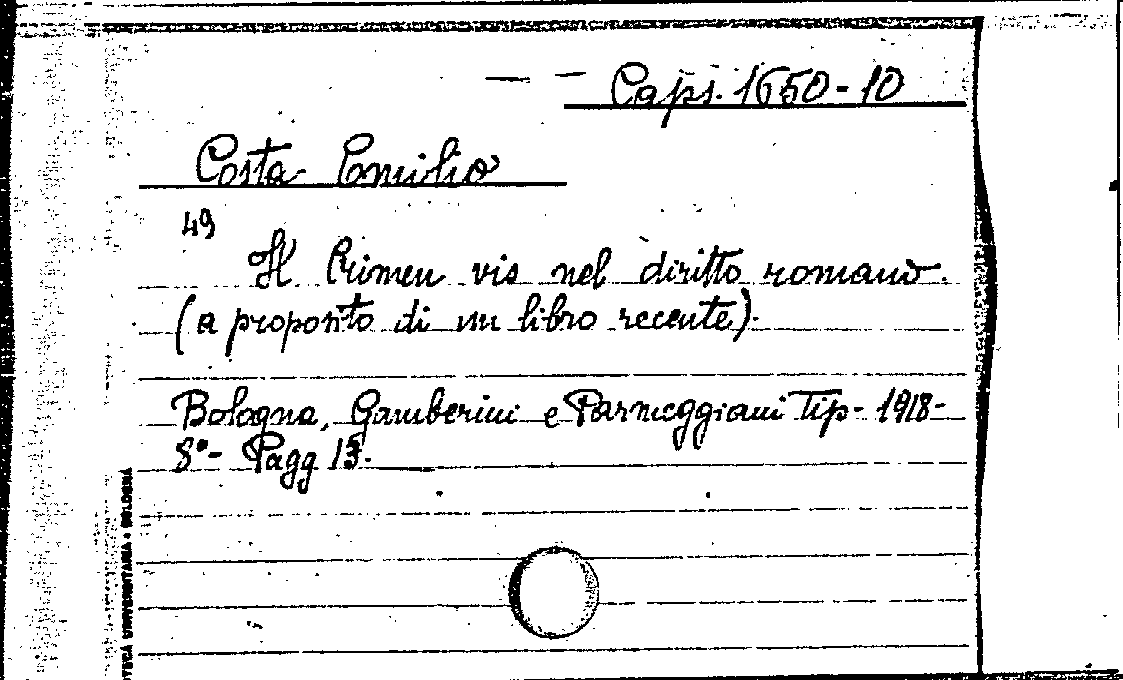 — — Caps. 1650-10
Costa Emilio
49
Il Crimen vis nel diritto romano.
(a proposito di un libro recente).
Bologna, Gamberini e Parmeggiani Tip- 1918-
8°- Pagg 13.
OTECA UNIVERSITARIA • BOLOGNA